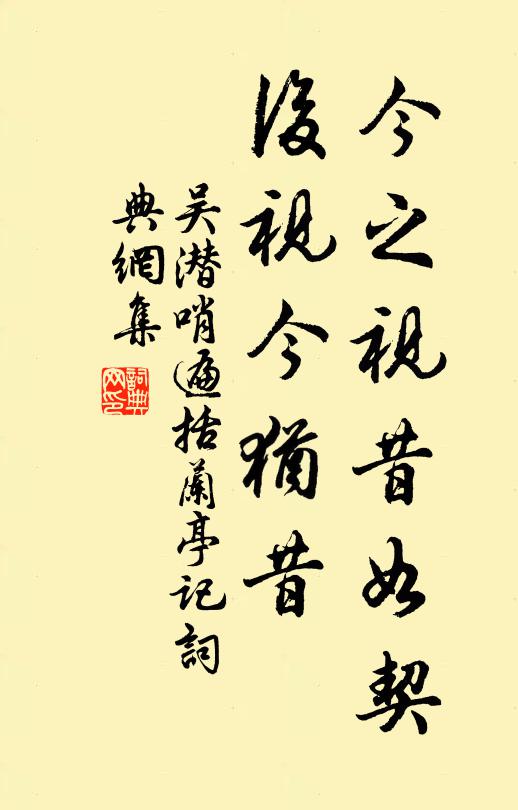 今之視昔如契
後視今猶昔
吴潜哨遍括蘭亭記詞
典網集
詞典網印